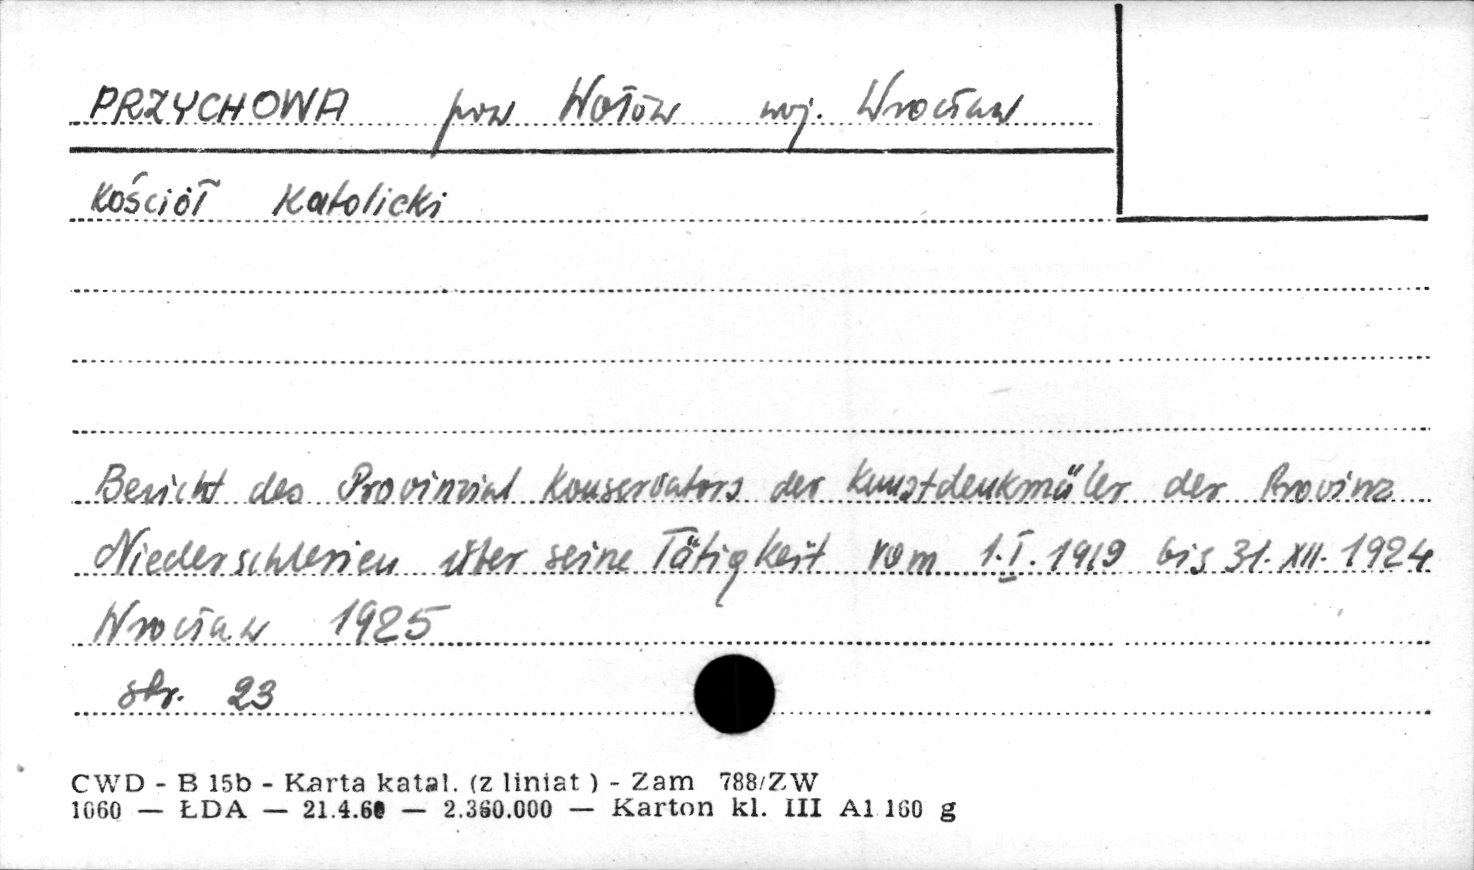 PRZYCHOWA pow Wołów woj. Wrocław
Kościół Katolicki
Bericht des Provinzial Konservators der Kunstdenkmäler der Provinz
Niederschlesien über seine Tätigkeit vom 1.I.1919 bis 31.XII.1924
Wrocław 1925
str. 23
CWD - B 15b - Karta katal. (z liniat ) - Zam 788/ZW
1060 — ŁDA — 21.4.60 — 2.360.000 — Karton kl. III A1 160 g